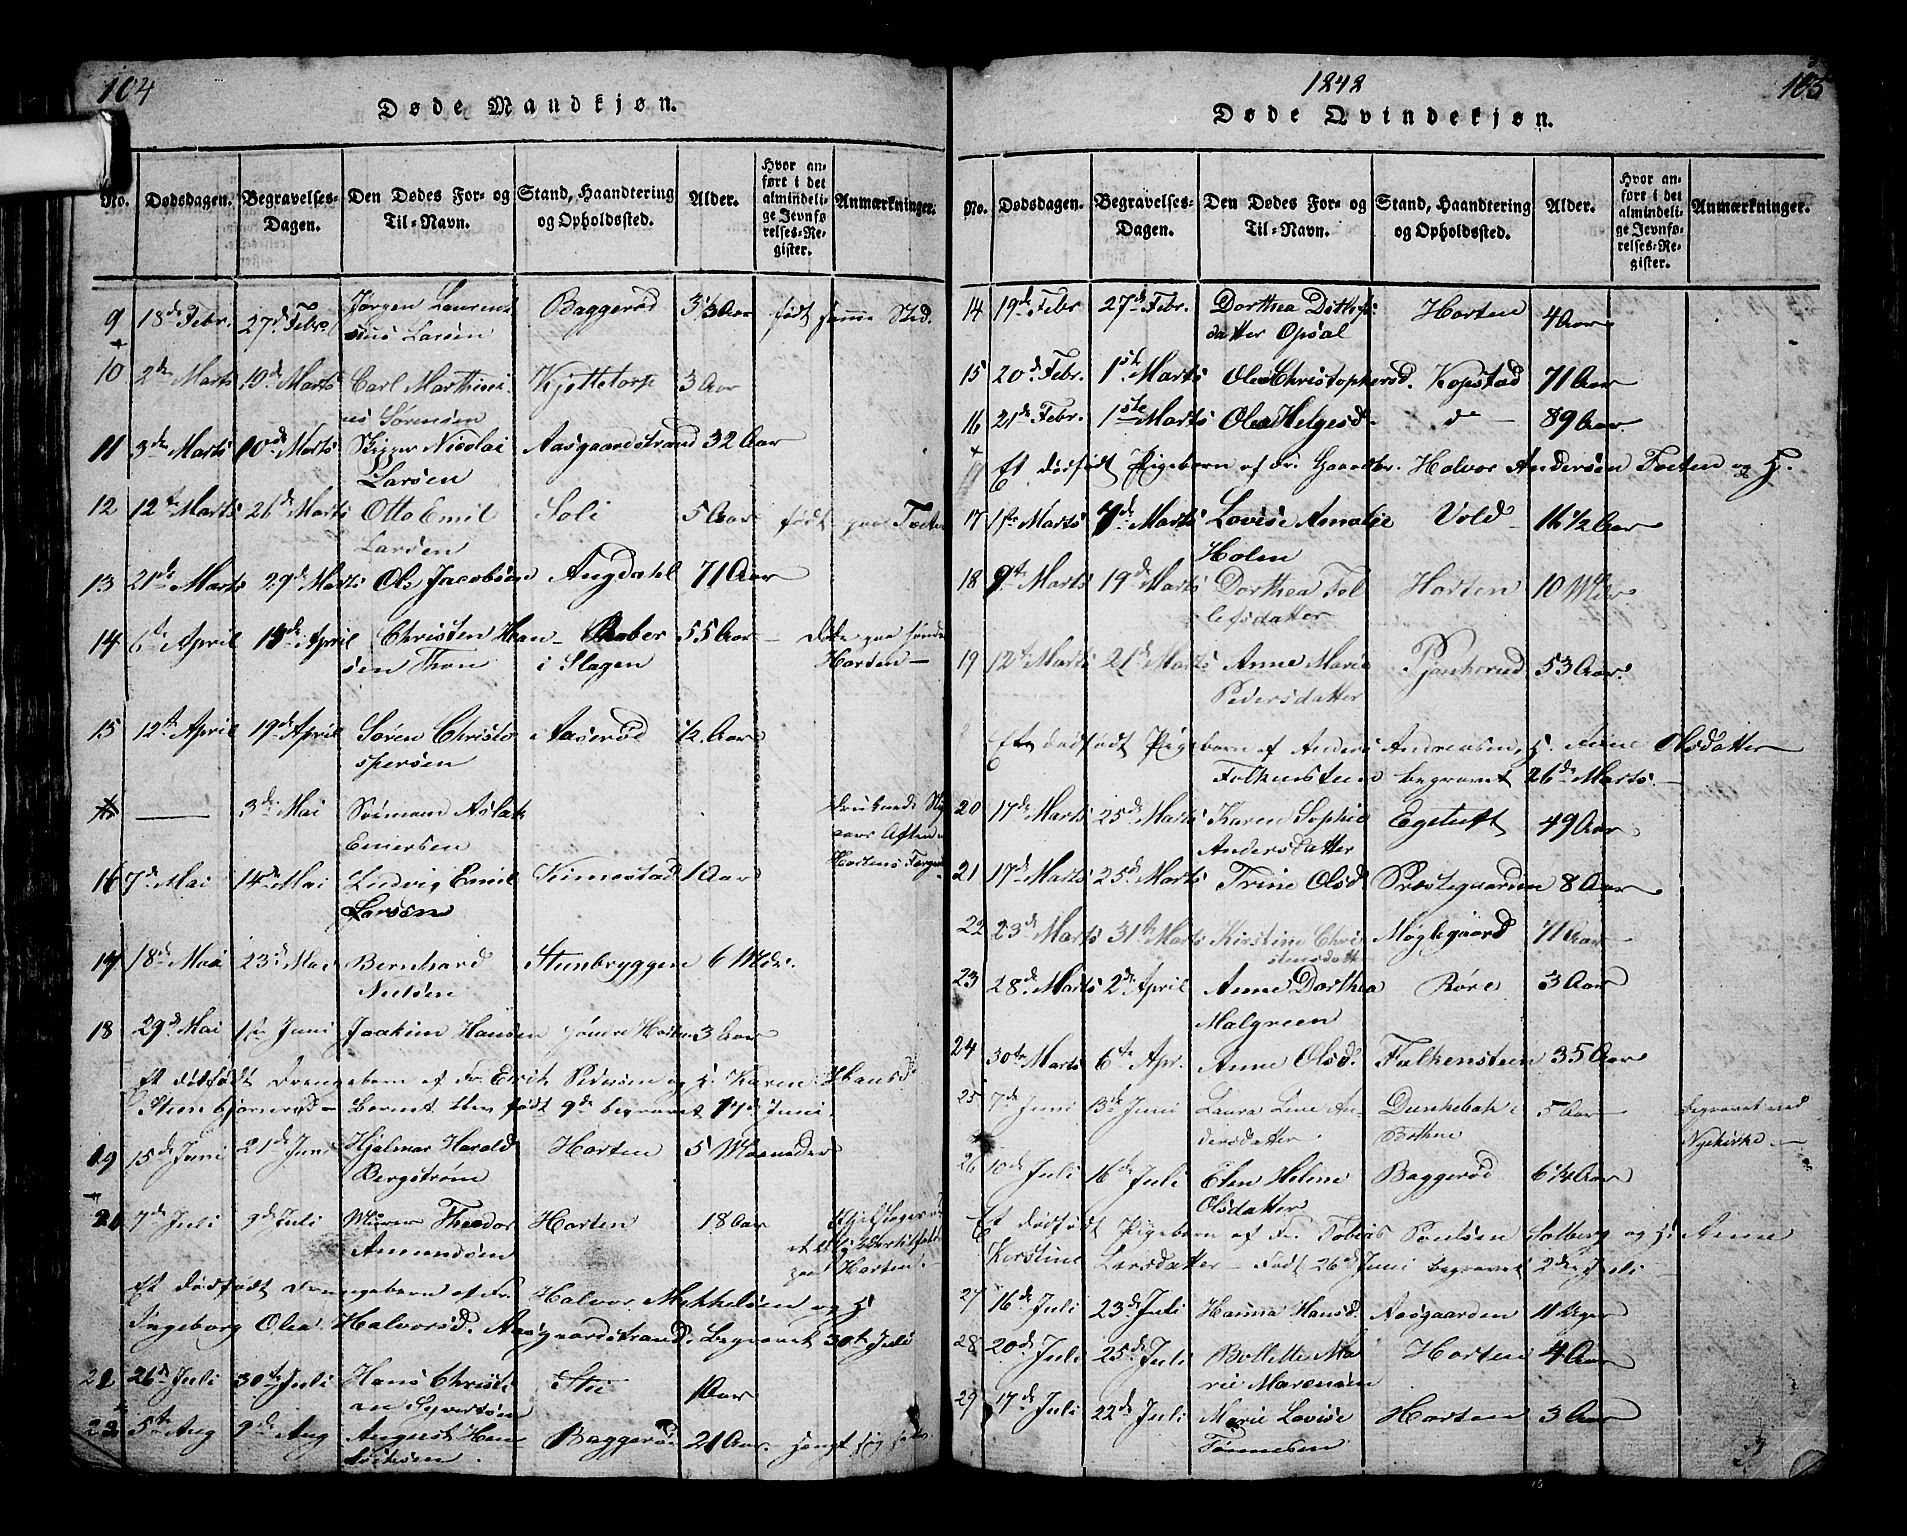 104
Døde Mandkjøn.
No. Dødsdagen. Begravelses-Dagen. Den Dødes For- og Til-Navn. Stand, Haandtering og Opholdssted. Alder. Hvor anført i det almindelige Jevnførelses-Register. Anmærkninger.
9 18de Febr. 27de Febr. Jørgen Laurent
Larsen Baggerød 3 1/3 Aar født samme Sted.
10 2den Marts 10de Marts Carl Marthini
us Sørensen Kjøttetorp 3 Aar
11 3de Marts 10de Marts Skipper Nicolai
Larsen Aasgaardstrand 32 Aar
12 12te Marts 26de Marts Otto Emil
Larsen Soli 5 Aar født paa Toten
13 21de Marts 29de Marts Ole Jacobsen Augdahl 71 Aar
14 6te April 15de April Christen Han
sen Thon i Slagen 55 Aar
Horten
15 12te April 19de April Søren Christo
phersen Aaserød 1/2 Aar
3de Mai Sømand Aslak
Einersen
Hortens
16 7de Mai 14de Mai Ludvig Emil
Larsen Kimestad 1 Aar
17 18de Mai 23de Mai Bernhard
Nielsen Steenbryggen 6 Mdr.
18 29de Mai 1ste Juni Joakim Hansen Horten 3 Aar
Et dødfødt Drengebarn af Fr. Erik Pedersen og H. Karen Hansd.
Steenbjørnrød født 9de begravet 17de Juni
19 15de Juni 21de Juni Hjalmar Harald
Bergstrøm Horten 5 Maaneder
20 7de Juli 9de Juli Murer Theodor
Amundsen Horten 18 Aar
paa Horten
Et dødfødt Drengebarn af Fr. Halvor Mikkelsen og H
Ingeborg Olea Halvorsd. Aasgaardstrand. Begravet 30te Juli
21 26de Juli 30te Juli Hans Christi
an Syvertsen Stie 1 Aar
22 5te Aug 9de Aug August Han
Baggerød 21 Aar
1848
105
Døde Qvindekjøn.
No. Dødsdagen. Begravelses-Dagen. Den Dødes For- og Til-Navn. Stand, Haandtering og Opholdssted. Alder. Hvor anført i det almindelige Jevnførelses-Register. Anmærkninger.
14 19de Febr 27de Febr. Dorthea Ditlefs
datter Opsal Horten 4 Aar
15 20de Febr. 1ste Marts Olea Christophersd. Kopstad 71 Aar
16 21de Febr. 1ste Marts Olea Helgesd. do 89 Aar
Et dødfødt Pigebarn af Fr. Gaardbr. Halvor Andersen Toeten og H.
17 1ste Marts 7de Marts Lovise Amalie
Holm Vold 16 1/2 Aar
18 9te Marts 19de Marts Dorthea Tol
lefsdatter Horten 10 Mdr.
19 12te Marts 21de Marts Anne Marie
Pedersdatter 53 Aar
Et dødfødt Pigebarn af Anders Andreasen, H. Anne Olsdatter
Falkensteen begravet 26de Marts
20 17de Marts 25de Marts Karen Sophie
Andersdatter Egetuft 49 Aar
21 17de Marts 25de Marts Trine Olsd. Præstegaarden 8 Aar
22 23de Marts 31te Marts Kirstine Chri
stensdatter Møglegaard 71 Aar
23 28de Marts 2de April Anne Dorthea
Malgreen Røre 3 Aar
24 30te Marts 6te Apr. Anne Olsd. Falkensteen 35 Aar
25 7de Juni 13de Juni Laura Line An
dersdatter Dunkebak i
Bothne 5 Aar begravet ved
Nykirke
26 10de Juli 16de Juli Elen Helene
Olsdatter Baggerød 6 1/4 Aar
Et dødfødt Pigebarn af Fr. Tobias Poulsen Solberg og H. Anne
Kirstine Larsdatter født 26de Juni begravet 2den Juli
27 16de Juli 23de Juli Hanna Hansd. Aasgaarden 11 Uger
28 20de Juli 25de Juli Bollette Ma
rie Marensen Horten 4 Aar
29 17de Juli 22de Juli Marie Lovise
Tønnesen Horten 3 Aar